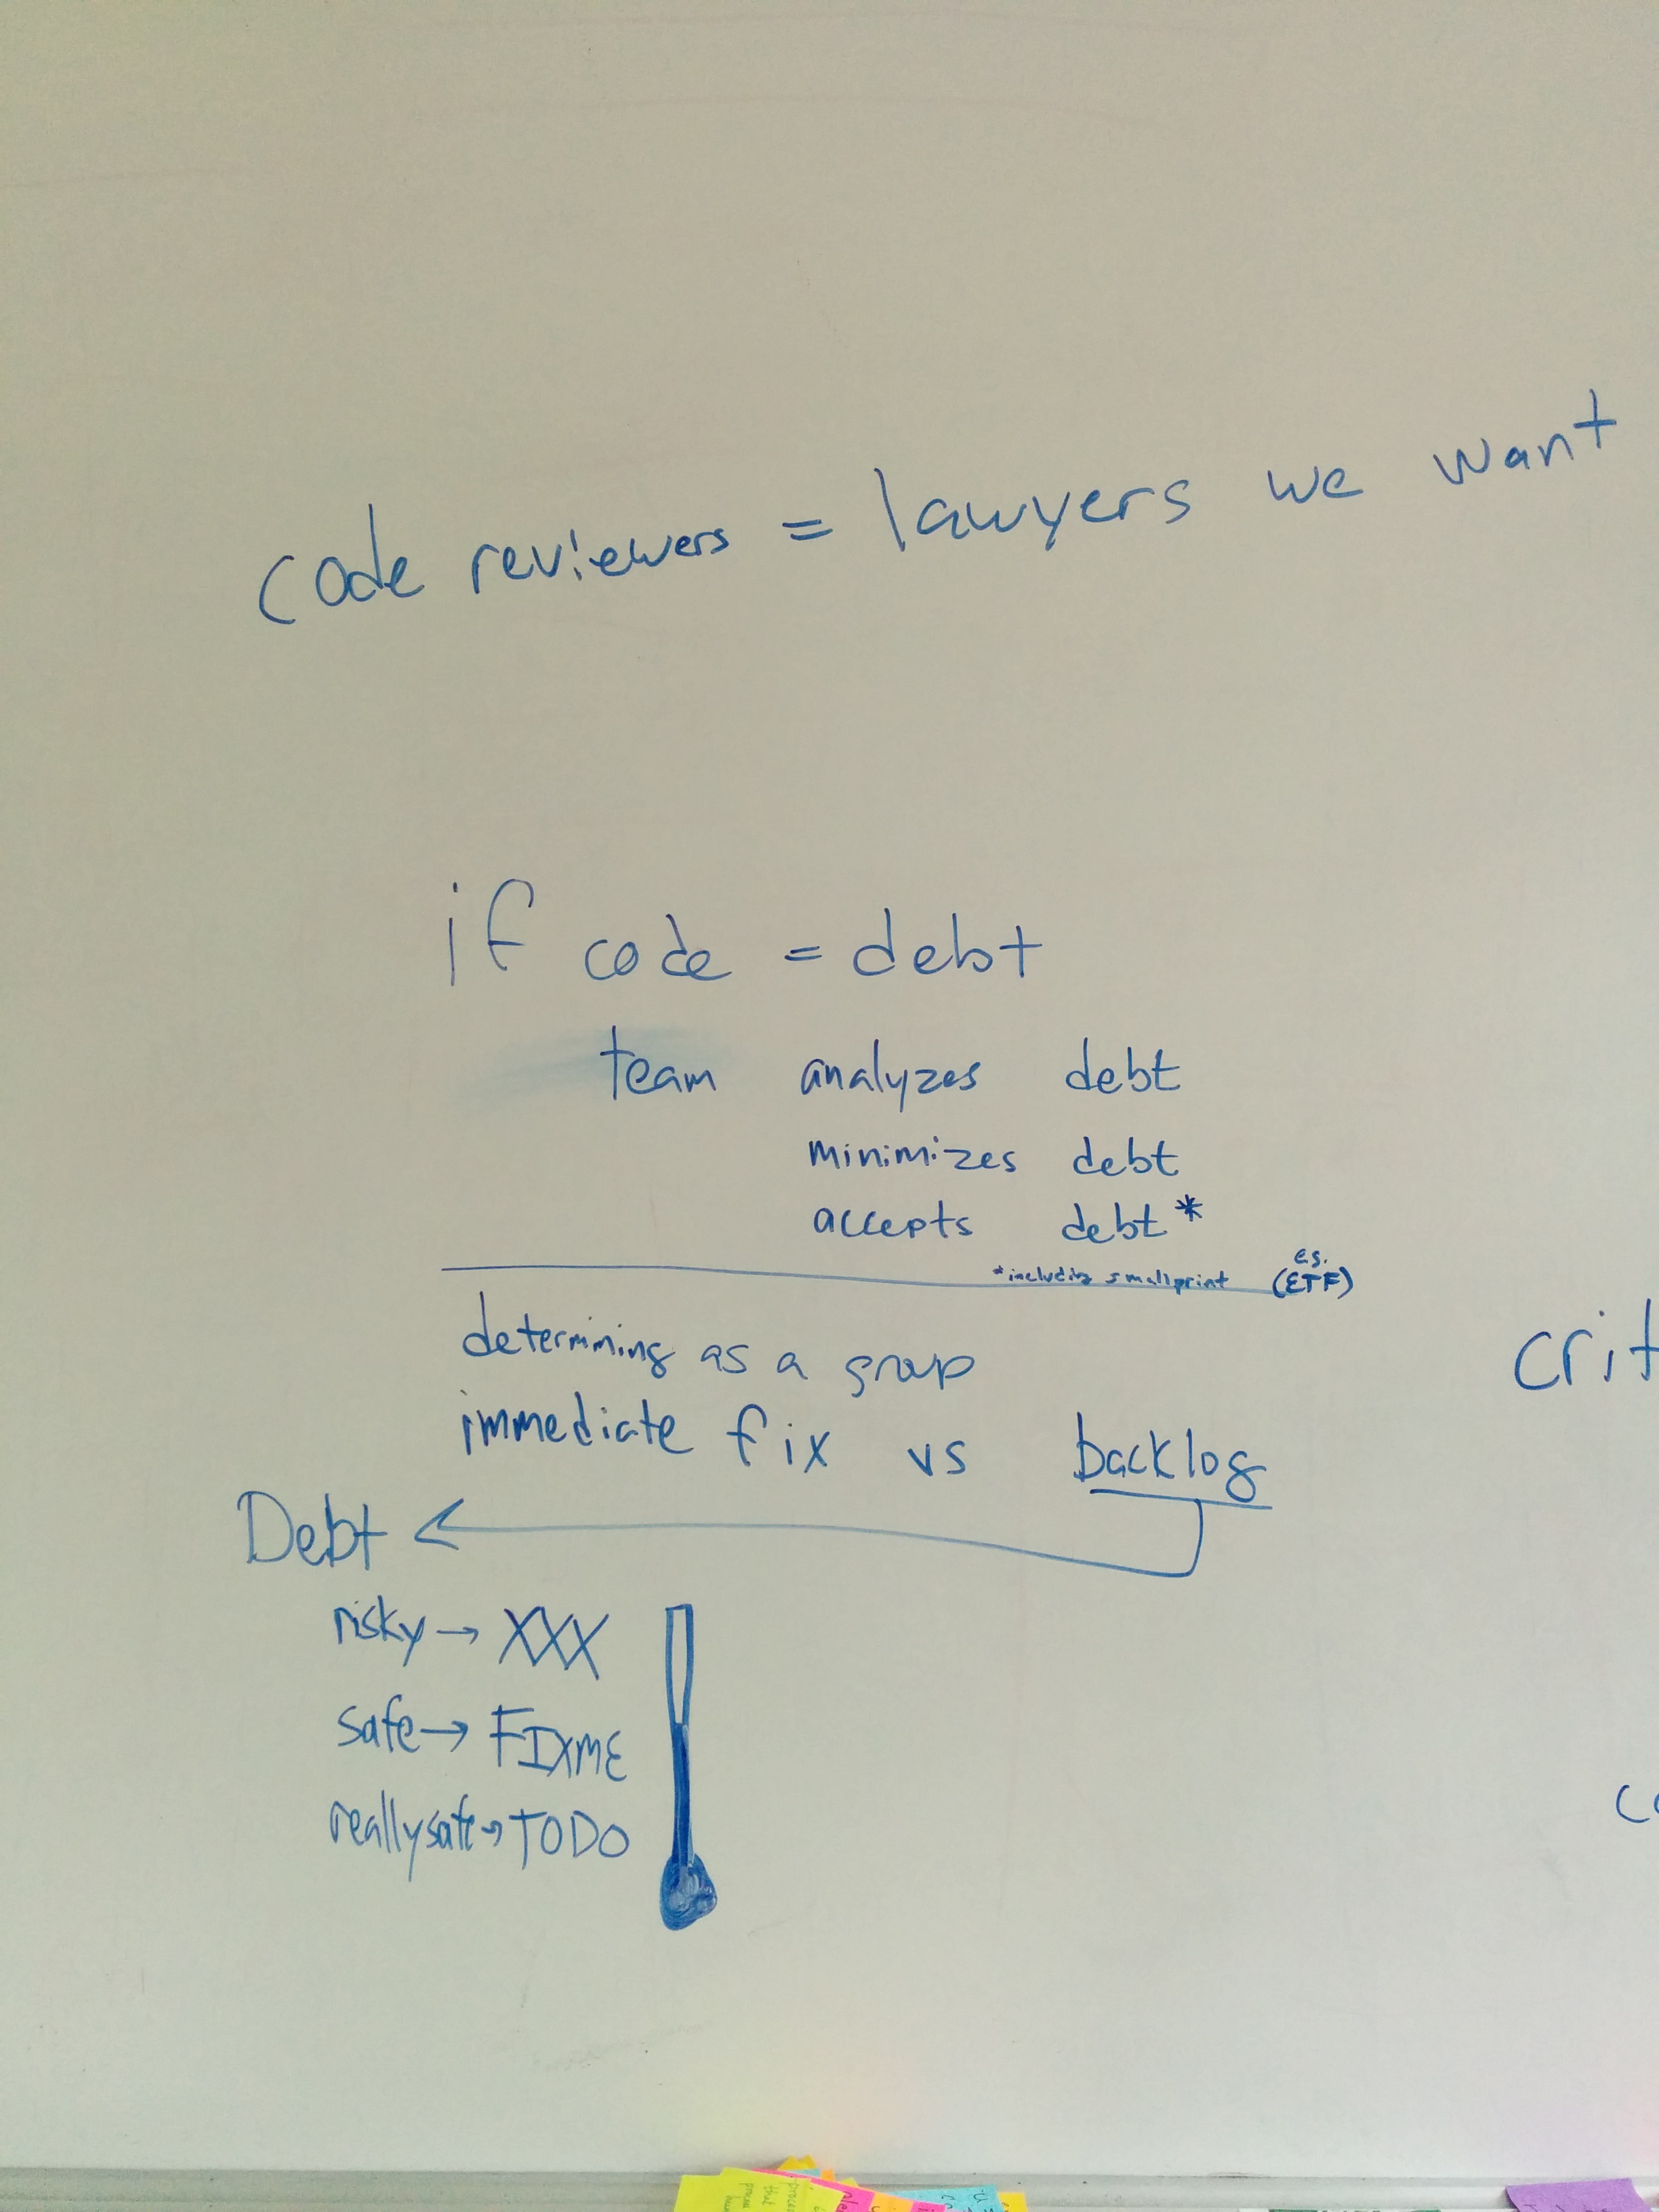 code reviewers = lawyers we want
if code = debt
team analyzes debt
minimizes debt
accepts debt*
*including smallprint (ETF)
e.g.
determining as a group
immediate fix vs backlog
Debt
risky → XXX
safe → FIXME
really safe → TODO
crit